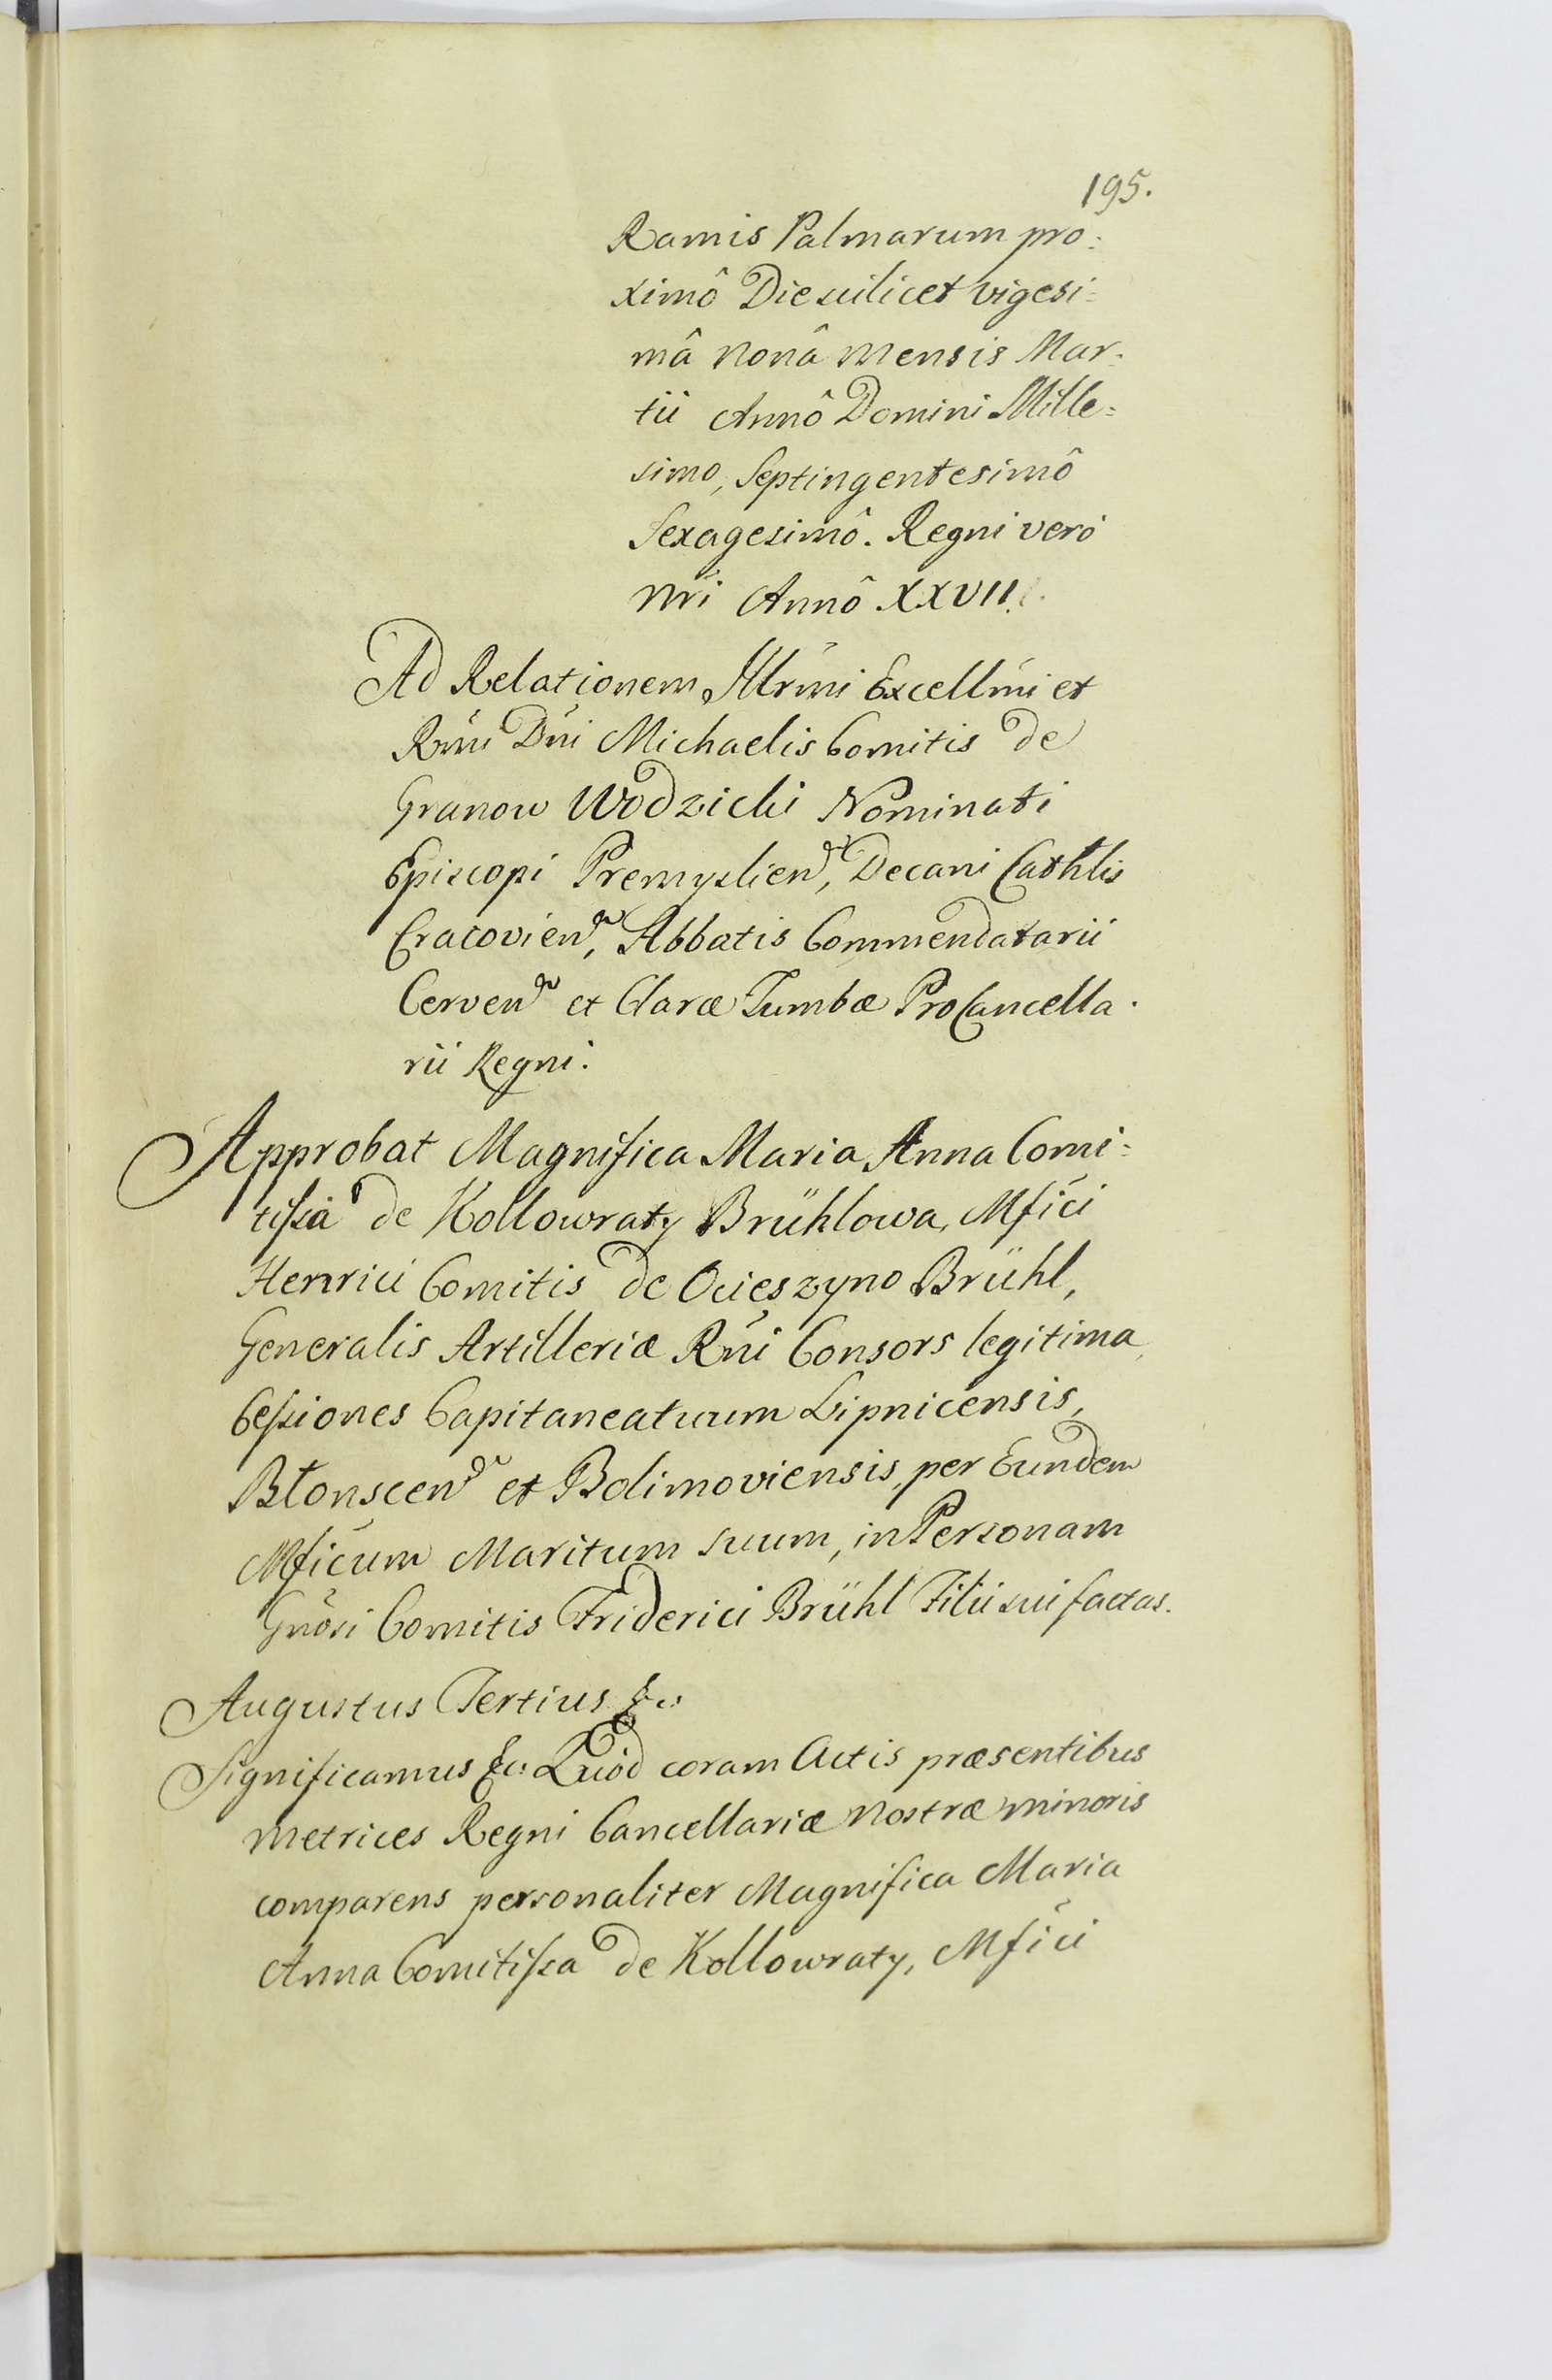 195.
Ramis Palmarum pro:
ximô Die scilicet vigesi=
mâ nonâ mensis Mar:
tii Annô Domini Mille=
simo, Septingentesimô
Sexagesimô. Regni verò
nri Annô XXVII.
Ad Relationem Illrmi Excellmi et
Rmi Dni Michaelis Comitis de
Granow Wodzicki Nominati
Episcopi Premyslien, Decani Cathlis
Cracovien, Abbatis Commendatarii
Cerven et Claræ Tumbæ ProCancella:
rii Regni.
Approbat Magnifica Maria Anna Comi=
tissa de Kollowraty Brühlowa, Mfici
Henrici Comitis de Ocieszyno Brühl,
Generalis Artilleriæ Rni Consors legitima,
Cessiones Capitaneatuum Lipnicensis,
Błonscen et Bolimoviensis, per Eundem
Mficum Maritum suum, in Personam
Gnosi Comitis Friderici Brühl Filii sui factas.
Augustus Tertius &c:
Significamus &c: Quod coram Actis præsentibus
Metrices Regni Cancellariæ nostræ minoris
comparens personaliter Magnifica Maria
Anna Comitissa de Kollowraty, Mfici